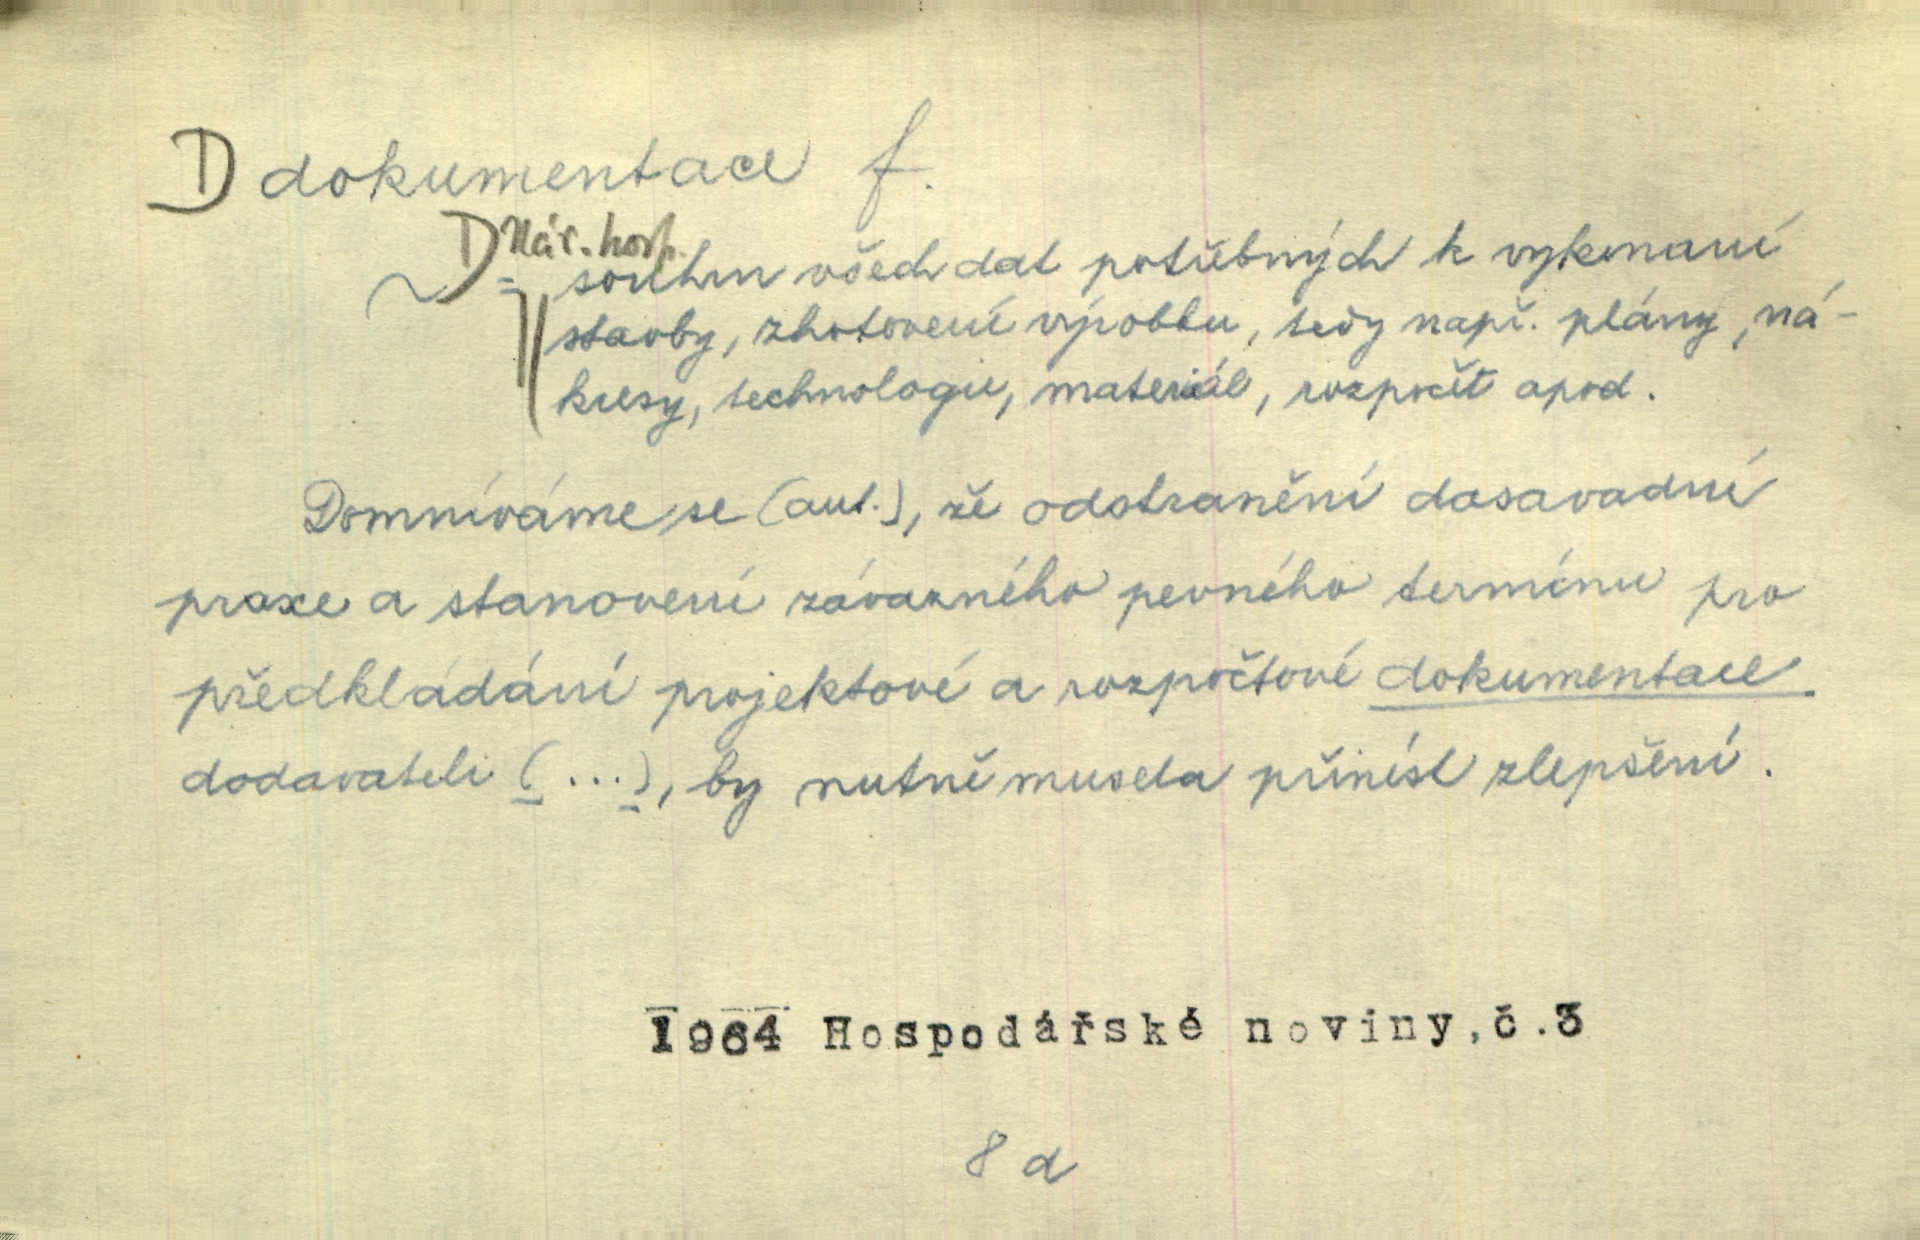 D dokumentace f.
D Nár. hosp.
~ = souhrn všech dat potřebných k vykonání
stavby, zhotovení výrobku, tedy např. plány, ná-
kresy, technologii, materiál, rozpočet apod.
Domníváme se (aut.), že odstranění dosavadní
praxe a stanovení závazného pevného termínu pro
předkládání projektové a rozpočtové dokumentace
dodavateli (...), by nutně musela přinést zlepšení.
1964 Hospodářské noviny, č.3
8 d